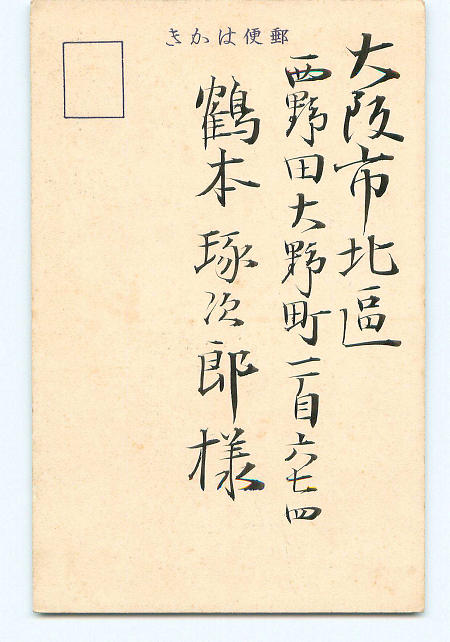 郵便はかき
大阪市北區
西野田大野町一丁目六七四
鶴本琢次郎様